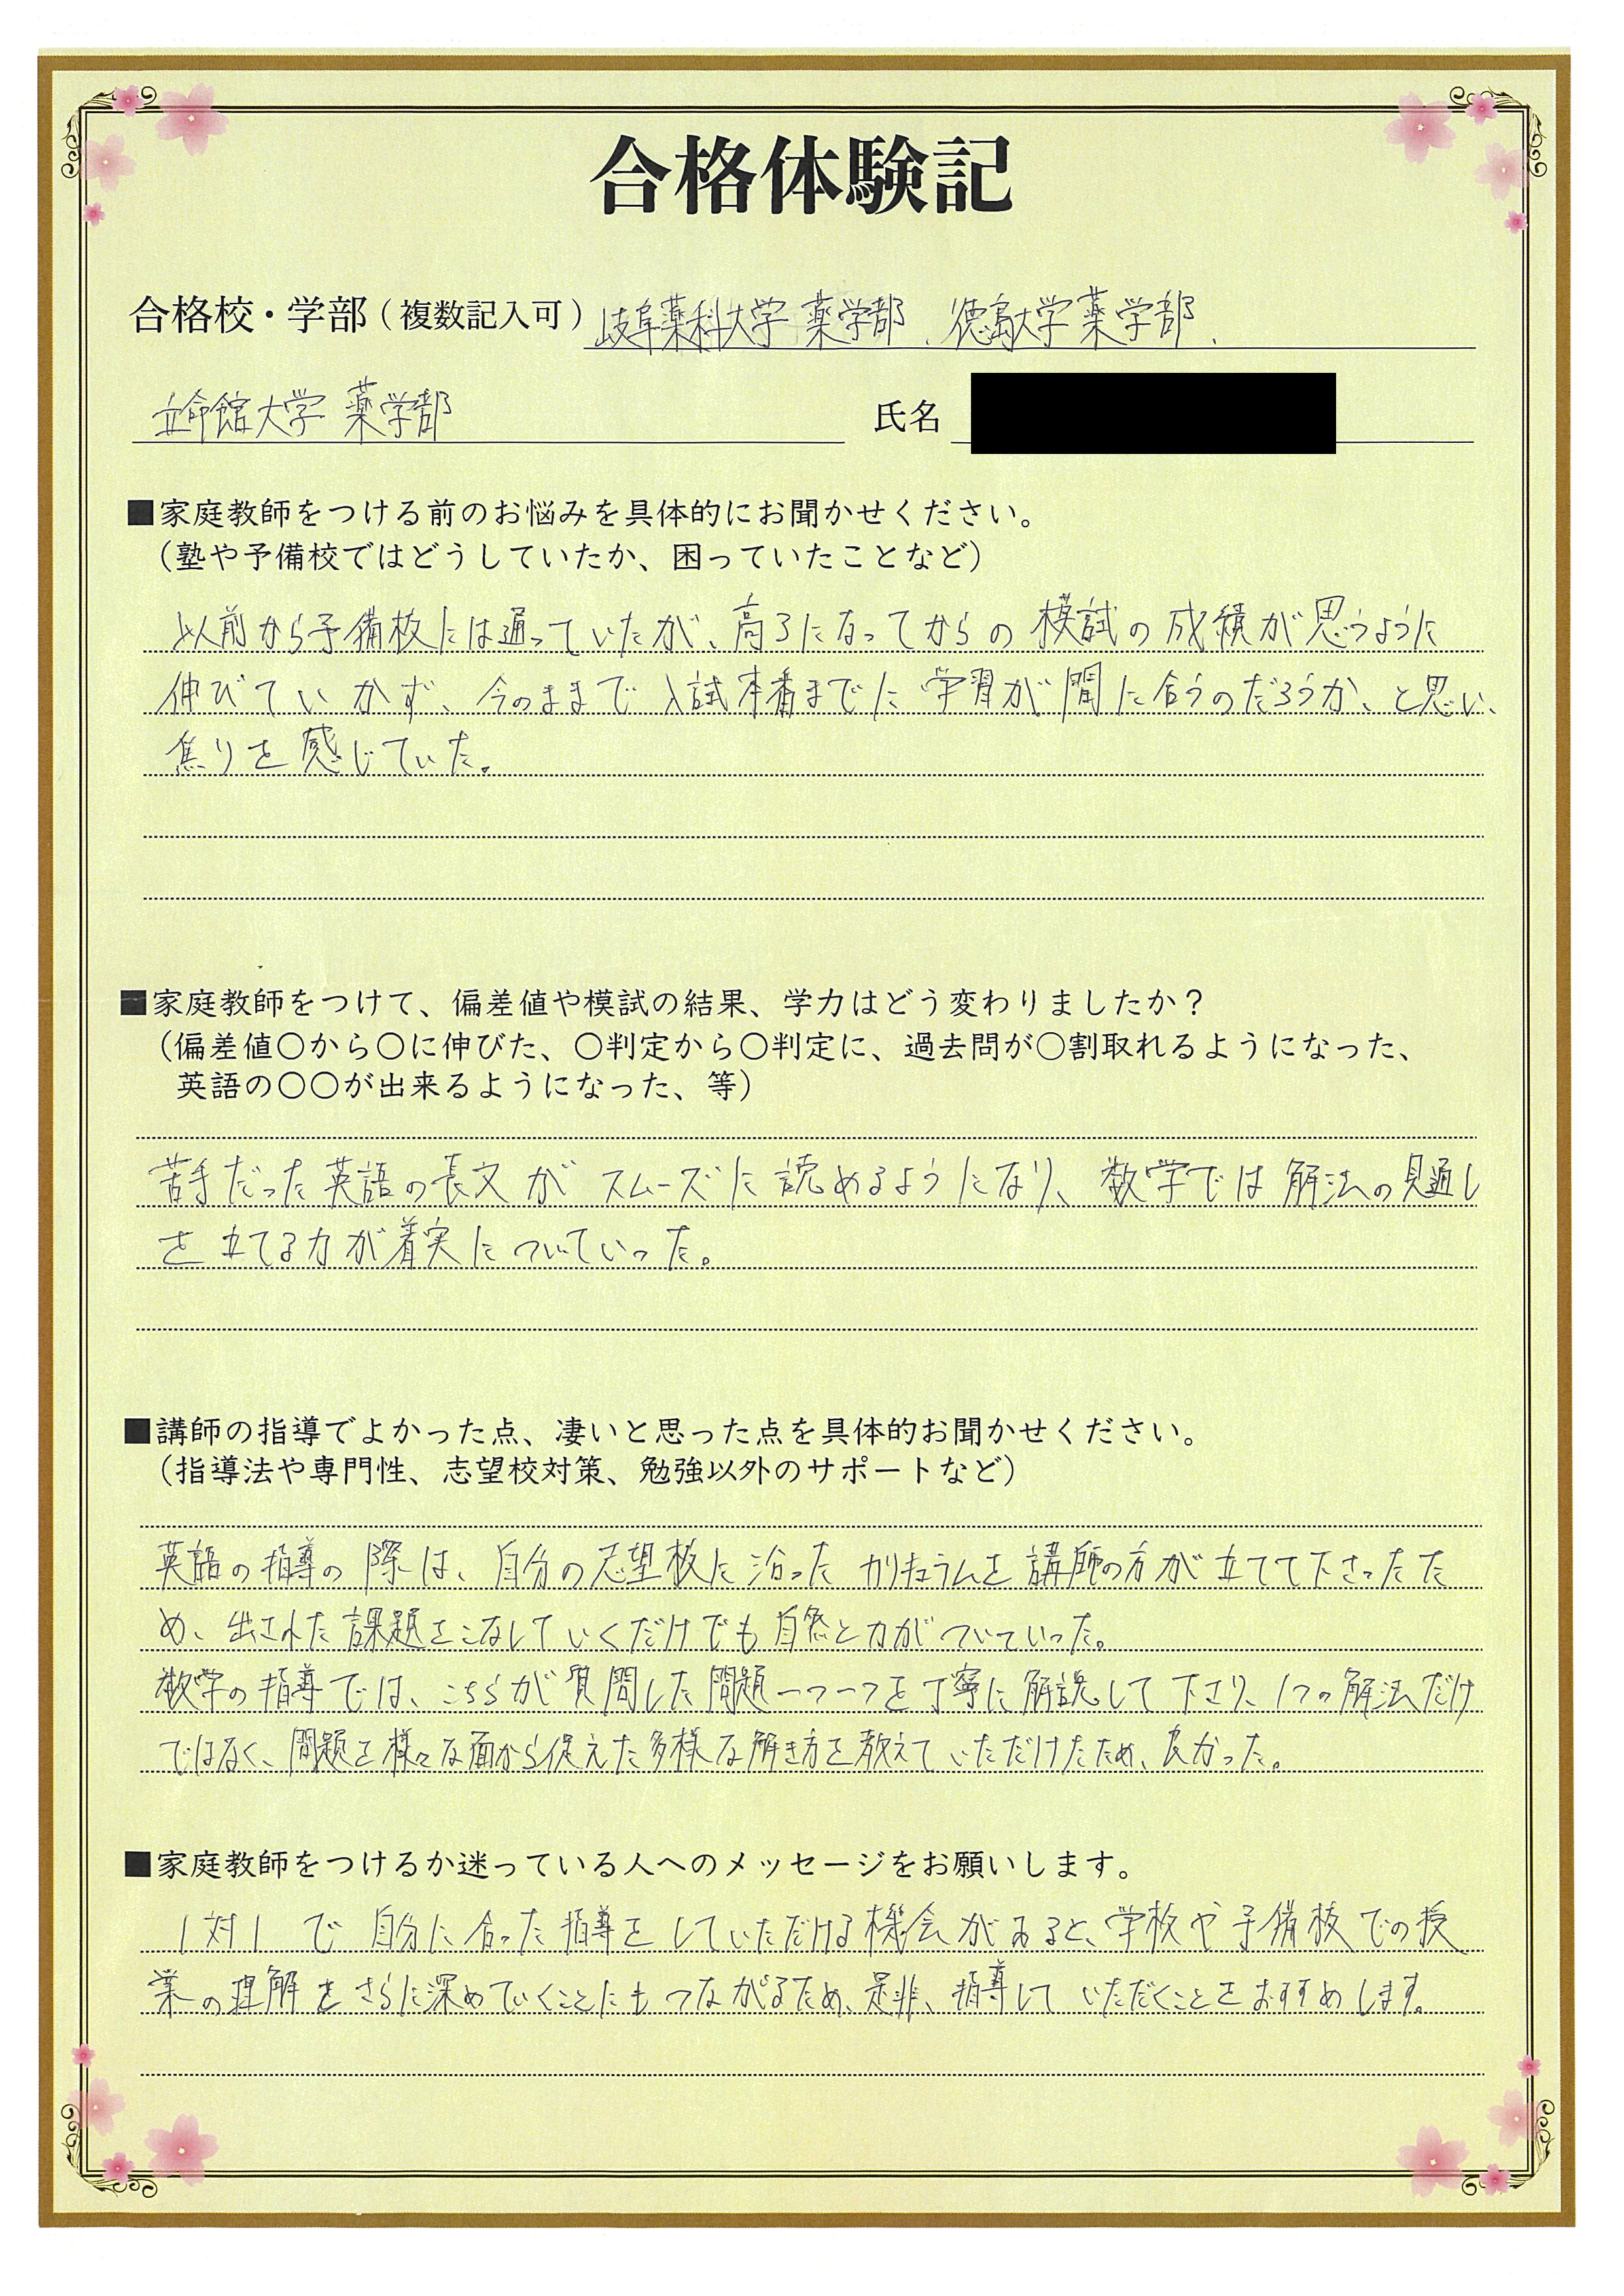 合格体験記
合格校・学部（複数記入可）岐阜薬科大学 薬学部、徳島大学薬学部、
立命館大学 薬学部 氏名
■家庭教師をつける前のお悩みを具体的にお聞かせください。
（塾や予備校ではどうしていたか、困っていたことなど）
以前から予備校には通っていたが、高3になってからの模試の成績が思うように
伸びていかず、今のままで入試本番までに学習が間に合うのだろうか、と思い、
焦りを感じていた。
■家庭教師をつけて、偏差値や模試の結果、学力はどう変わりましたか？
（偏差値〇から〇に伸びた、〇判定から〇判定に、過去問が〇割取れるようになった、
英語の〇〇が出来るようになった、等）
苦手だった英語の長文がスムーズに読めるようになり、数学では解法の見通し
を立てる力が着実についていった。
■講師の指導でよかった点、凄いと思った点を具体的お聞かせください。
（指導法や専門性、志望校対策、勉強以外のサポートなど）
英語の指導の際は、自分の志望校に沿ったカリキュラムを講師の方が立てて下さったた
め、出された課題をこなしていくだけでも自然と力がついていった。
数学の指導では、こちらが質問した問題一つ一つを丁寧に解説して下さり、1つの解法だけ
ではなく、問題を様々な面から捉えた多様な解き方を教えていただけたため、良かった。
■家庭教師をつけるか迷っている人へのメッセージをお願いします。
1対1で自分に合った指導をしていただける機会があると、学校や予備校での授
業の理解をさらに深めていくことにもつながるため、是非、指導していただくことをおすすめします。